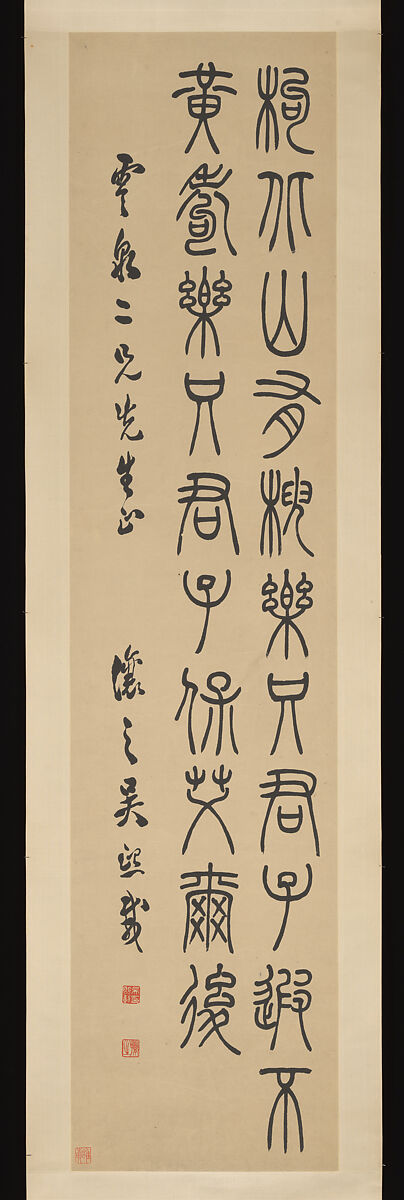 枸北山有楰樂只君子遐不
黃耇樂只君子保艾爾後
雲泉二兄先生正 讓之吳熙載